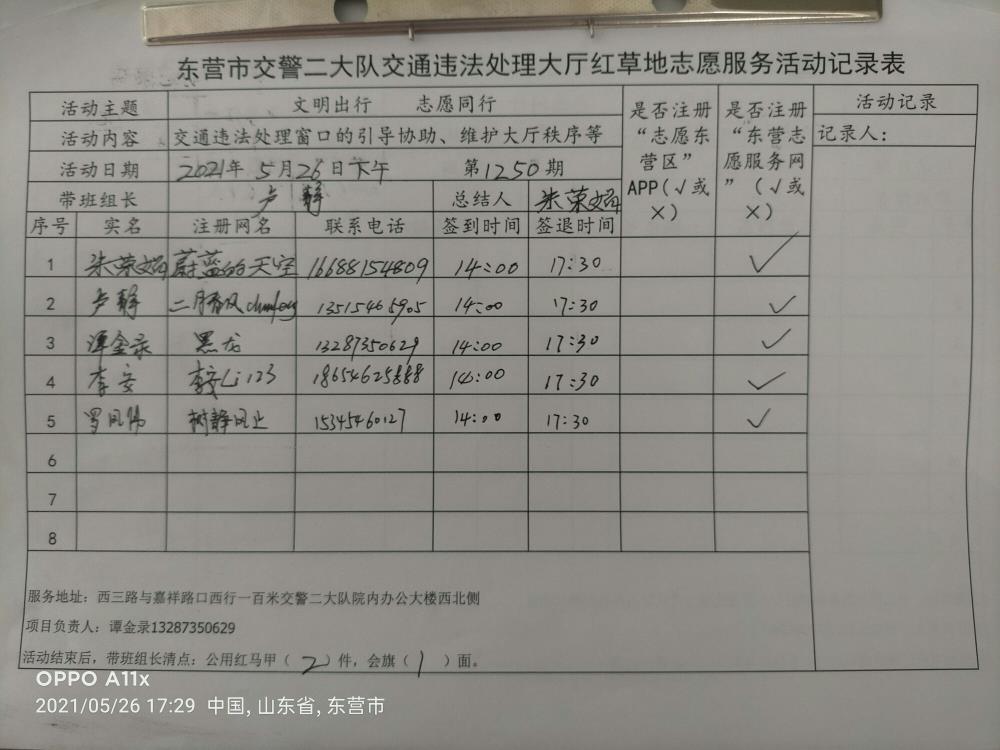 东营市交警二大队交通违法处理大厅红草地志愿服务活动记录表
活动主题 文明出行 志愿同行 是否注册“志愿东营区”APP(√或×) 是否注册“东营志愿服务网”(√或×) 活动记录
活动内容 交通违法处理窗口的引导协助、维护大厅秩序等 记录人:
活动日期 2021年 5月26日下午 第1250期
带班组长 卢静 总结人 朱荣娟
序号 实名 注册网名 联系电话 签到时间 签退时间
1 朱荣娟 蔚蓝的天空 16688154809 14:00 17:30 √
2 卢静 二月春风 13515465905 14:00 17:30 √
3 谭金录 黑龙 13287350629 14:00 17:30 √
4 李安 Li123 18654625888 14:00 17:30 √
5 罗凤伟 树静风止 15345460127 14:00 17:30 √
6
7
8
服务地址: 西三路与嘉祥路口西行一百米交警二大队院内办公大楼西北侧
项目负责人: 谭金录13287350629
活动结束后,带班组长清点: 公用红马甲( 2 )件,会旗( 1 )面。
OPPO A11x
2021/05/26 17:29 中国, 山东省, 东营市